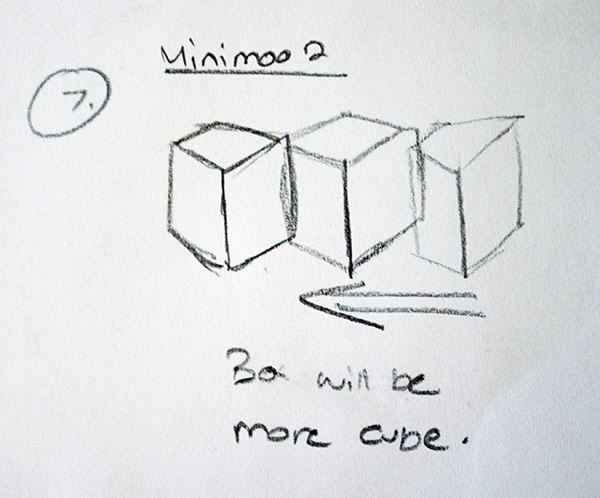 Minimoo 2
7.
Box will be
more cube.